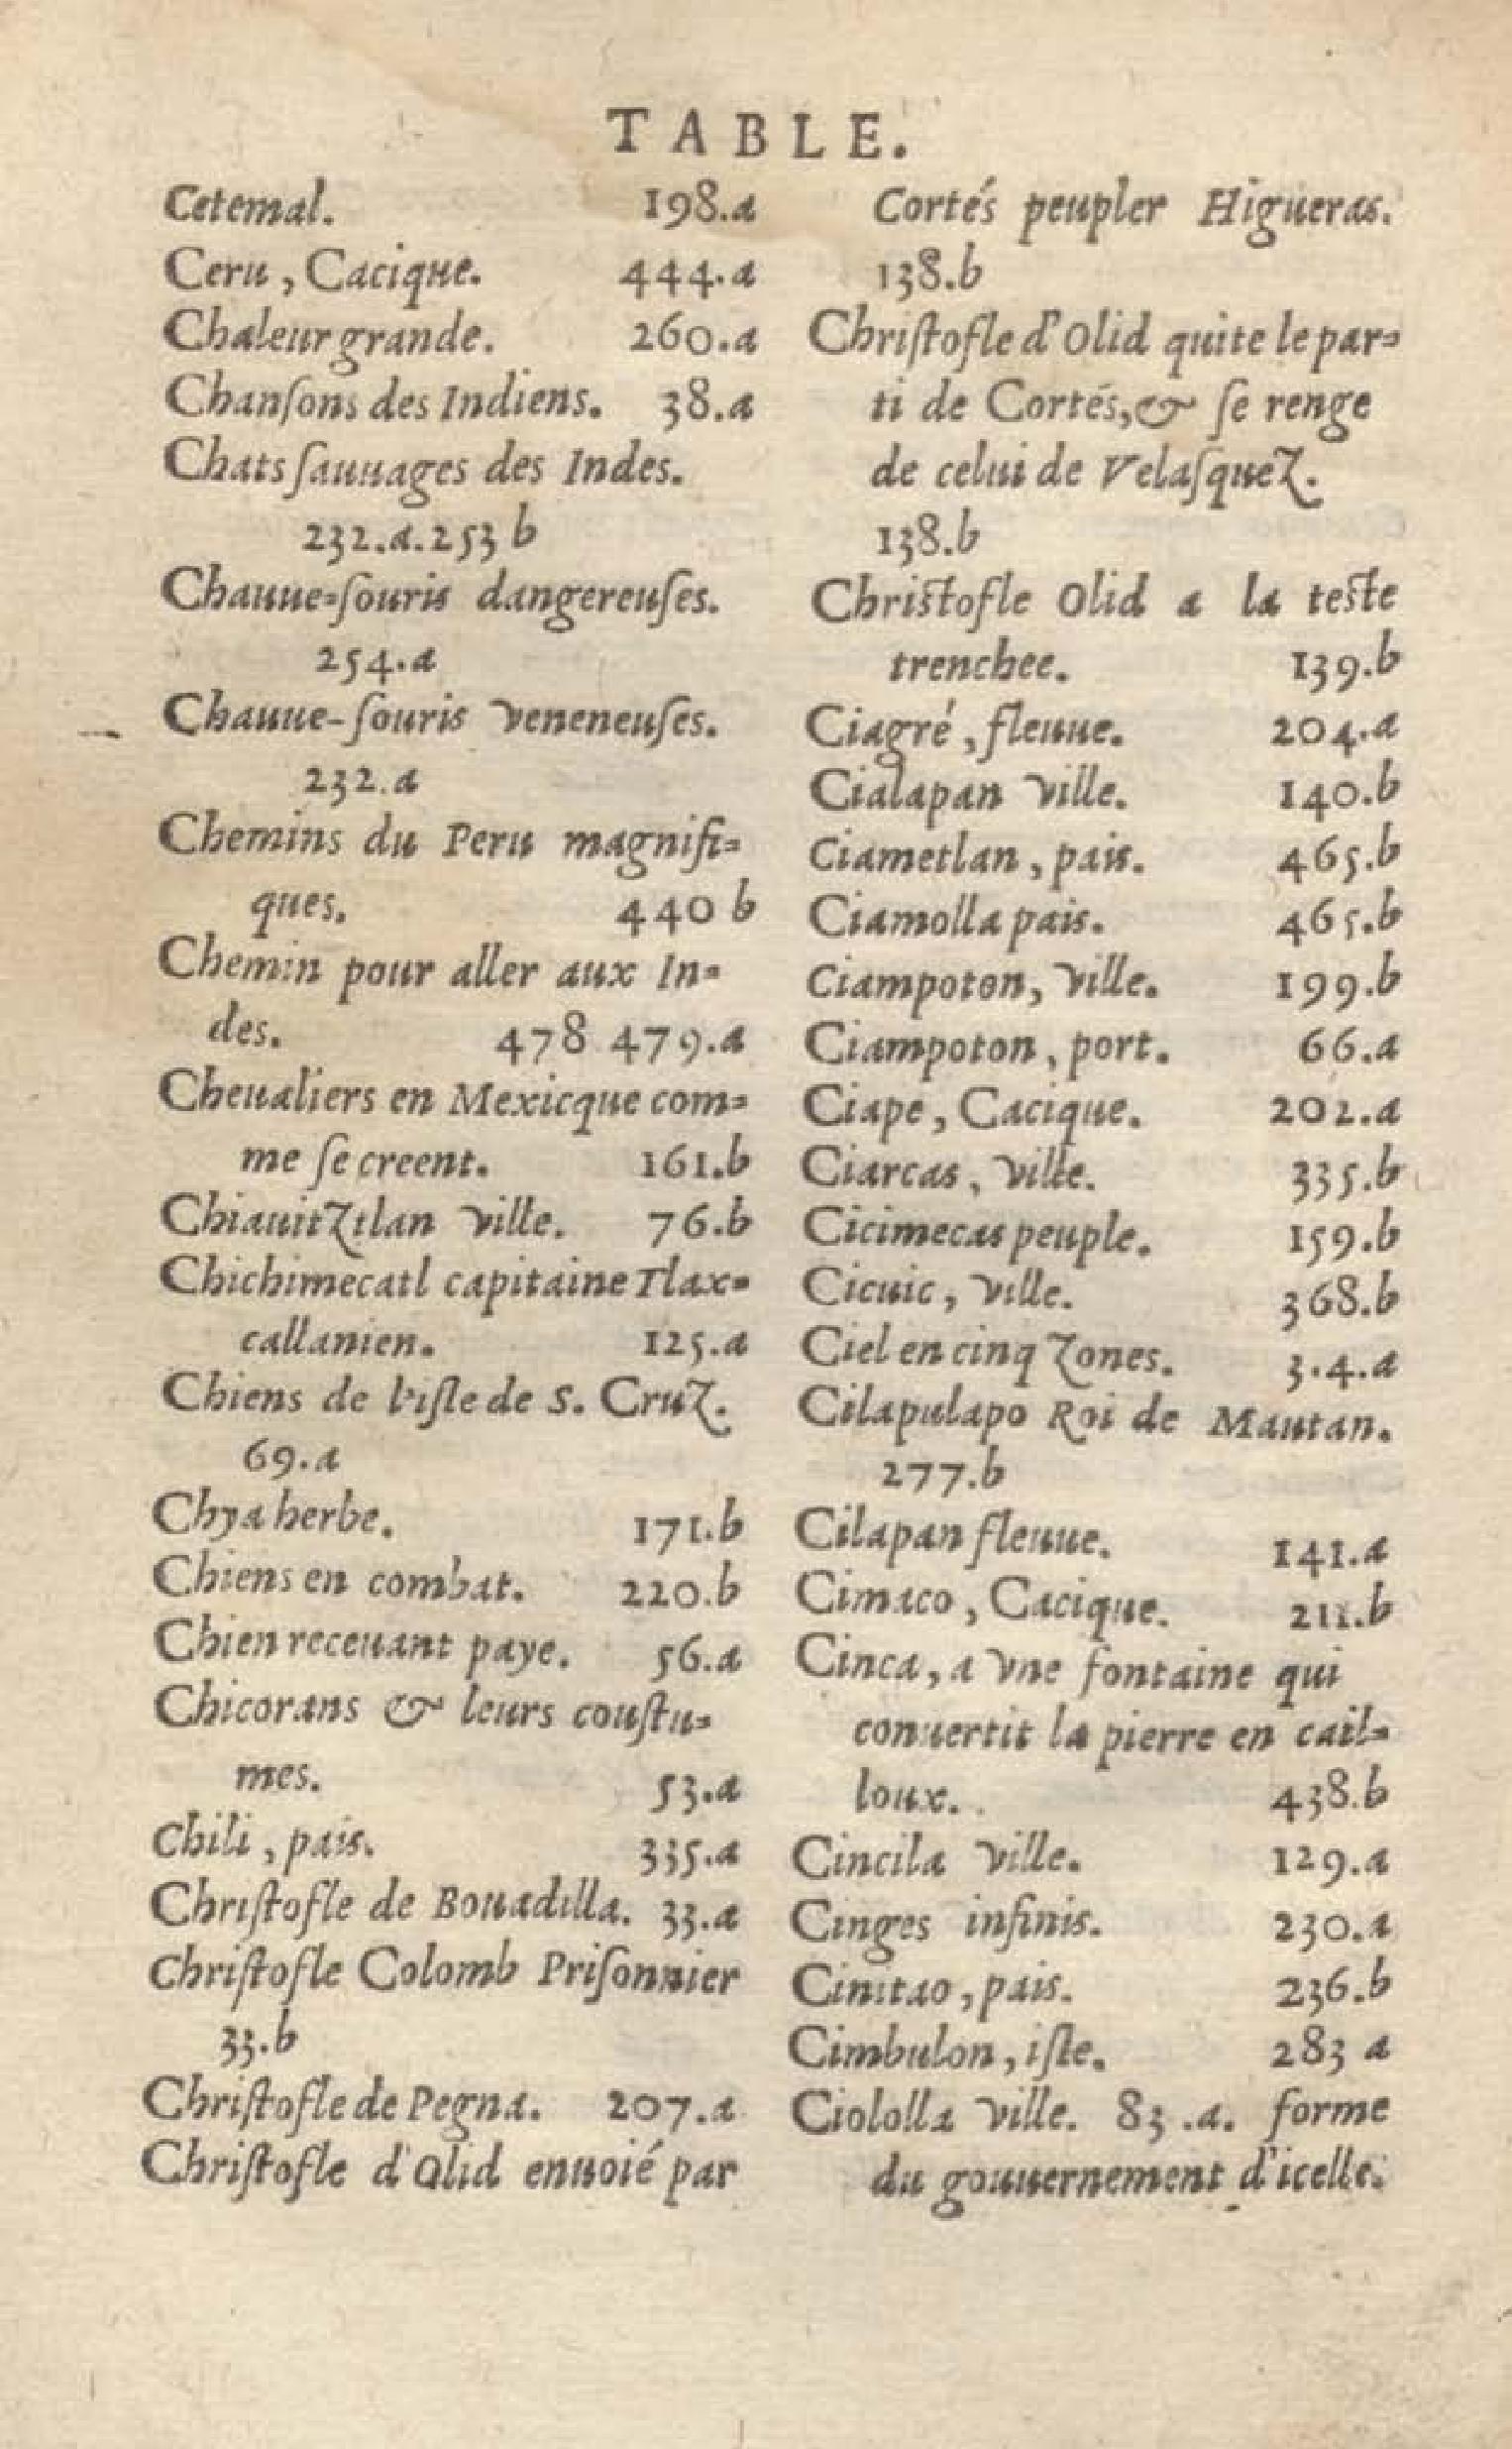 TABLE.
Cetemal. 198.a
Ceru, Cacique. 444.a
Chaleur grande. 260.a
Chanſons des Indiens. 38.a
Chats ſauuages des Indes.
232.a.253 b
Chauue-ſouris dangereuſes.
254.a
Chauue-ſouris veneneuſes.
232.a
Chemins du Peru magnifi-
ques. 440 b
Chemin pour aller aux In-
des. 478 479.a
Cheualiers en Mexicque com-
me ſe creent. 161.b
Chiauitztlan ville. 76.b
Chichimecatl capitaine Tlax-
callanien. 125.a
Chiens de l'iſle de S. Cruz.
69.a
Chya herbe. 171.b
Chiens en combat. 220.b
Chien receuant paye. 56.a
Chicorans & leurs couſtu-
mes. 53.a
Chili, pais. 335.a
Chriſtofle de Bouadilla. 33.a
Chriſtofle Colomb Priſonnier
33.b
Chriſtofle de Pegna. 207.a
Chriſtofle d'Olid enuoié par
Cortés peupler Higueras.
138.b
Chriſtofle d'Olid quite le par-
ti de Cortés, & ſe renge
de celui de Velaſquez.
138.b
Chriſtofle Olid a la teſte
trenchee. 139.b
Ciagré, fleuue. 204.a
Cialapan ville. 140.b
Ciametlan, pais. 465.b
Ciamolla pais. 465.b
Ciampoton, ville. 199.b
Ciampoton, port. 66.a
Ciape, Cacique. 202.a
Ciarcas, ville. 335.b
Cicimecas peuple. 159.b
Cicuic, ville. 368.b
Ciel en cinq zones. 3.4.a
Cilapulapo Roi de Mautan.
277.b
Cilapan fleuue. 141.a
Cimaco, Cacique. 211.b
Cinca, a vne fontaine qui
conuertit la pierre en cail-
loux. 438.b
Cincila ville. 129.a
Cinges infinis. 230.a
Cinitao, pais. 236.b
Cimbulon, iſle. 283 a
Ciololla ville. 83.a. forme
du gouuernement d'icelle.